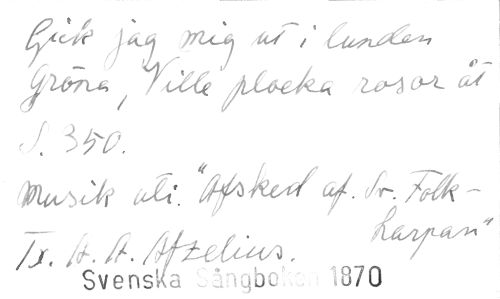 Gick jag mig ut i lunden
Gröna, Ville plocka rosor åt
S. 350.
Musik uti. "Afsked af. Sv. Folk-
harpan"
Tx. A. A. Afzelius.
Svenska Sångboken 1870